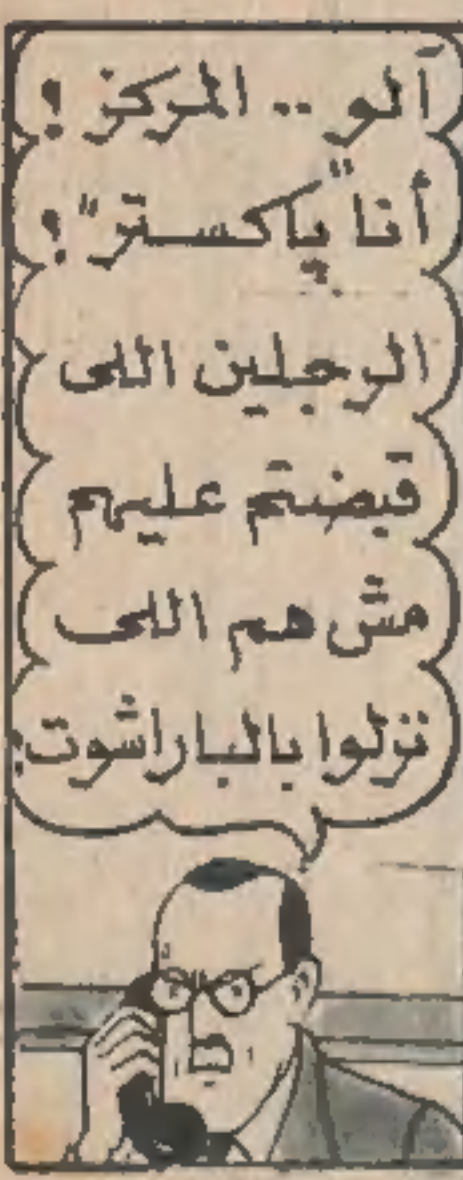 آلو .. المركز !
أنا "پاكستر" !
الرجلين اللى
قبضتم عليهم
مش هم اللى
نزلوا بالباراشوت !